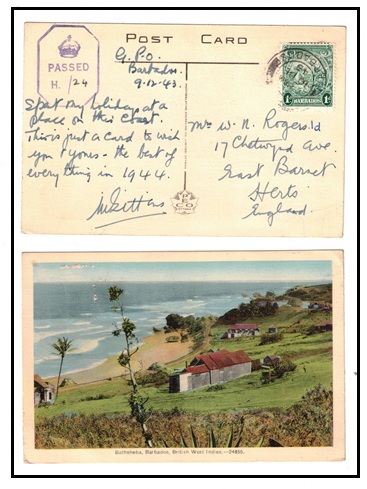 POST CARD
PASSED
H. /24
G.P.O.
Barbados.
9-12-43.
Spent my holidays at a
place on this Coast.
This is just a card to wish
you & yours - the best of
everything in 1944.
Mr W. N. Rogers.
17 Chetwynd Ave.
East Barnet
Herts
England.
BARBADOS
1d
PECO
Bathsheba, Barbados, British West Indies.—24855.